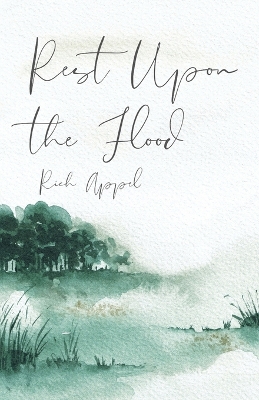 Rest Upon
the Flood
Rich Appel